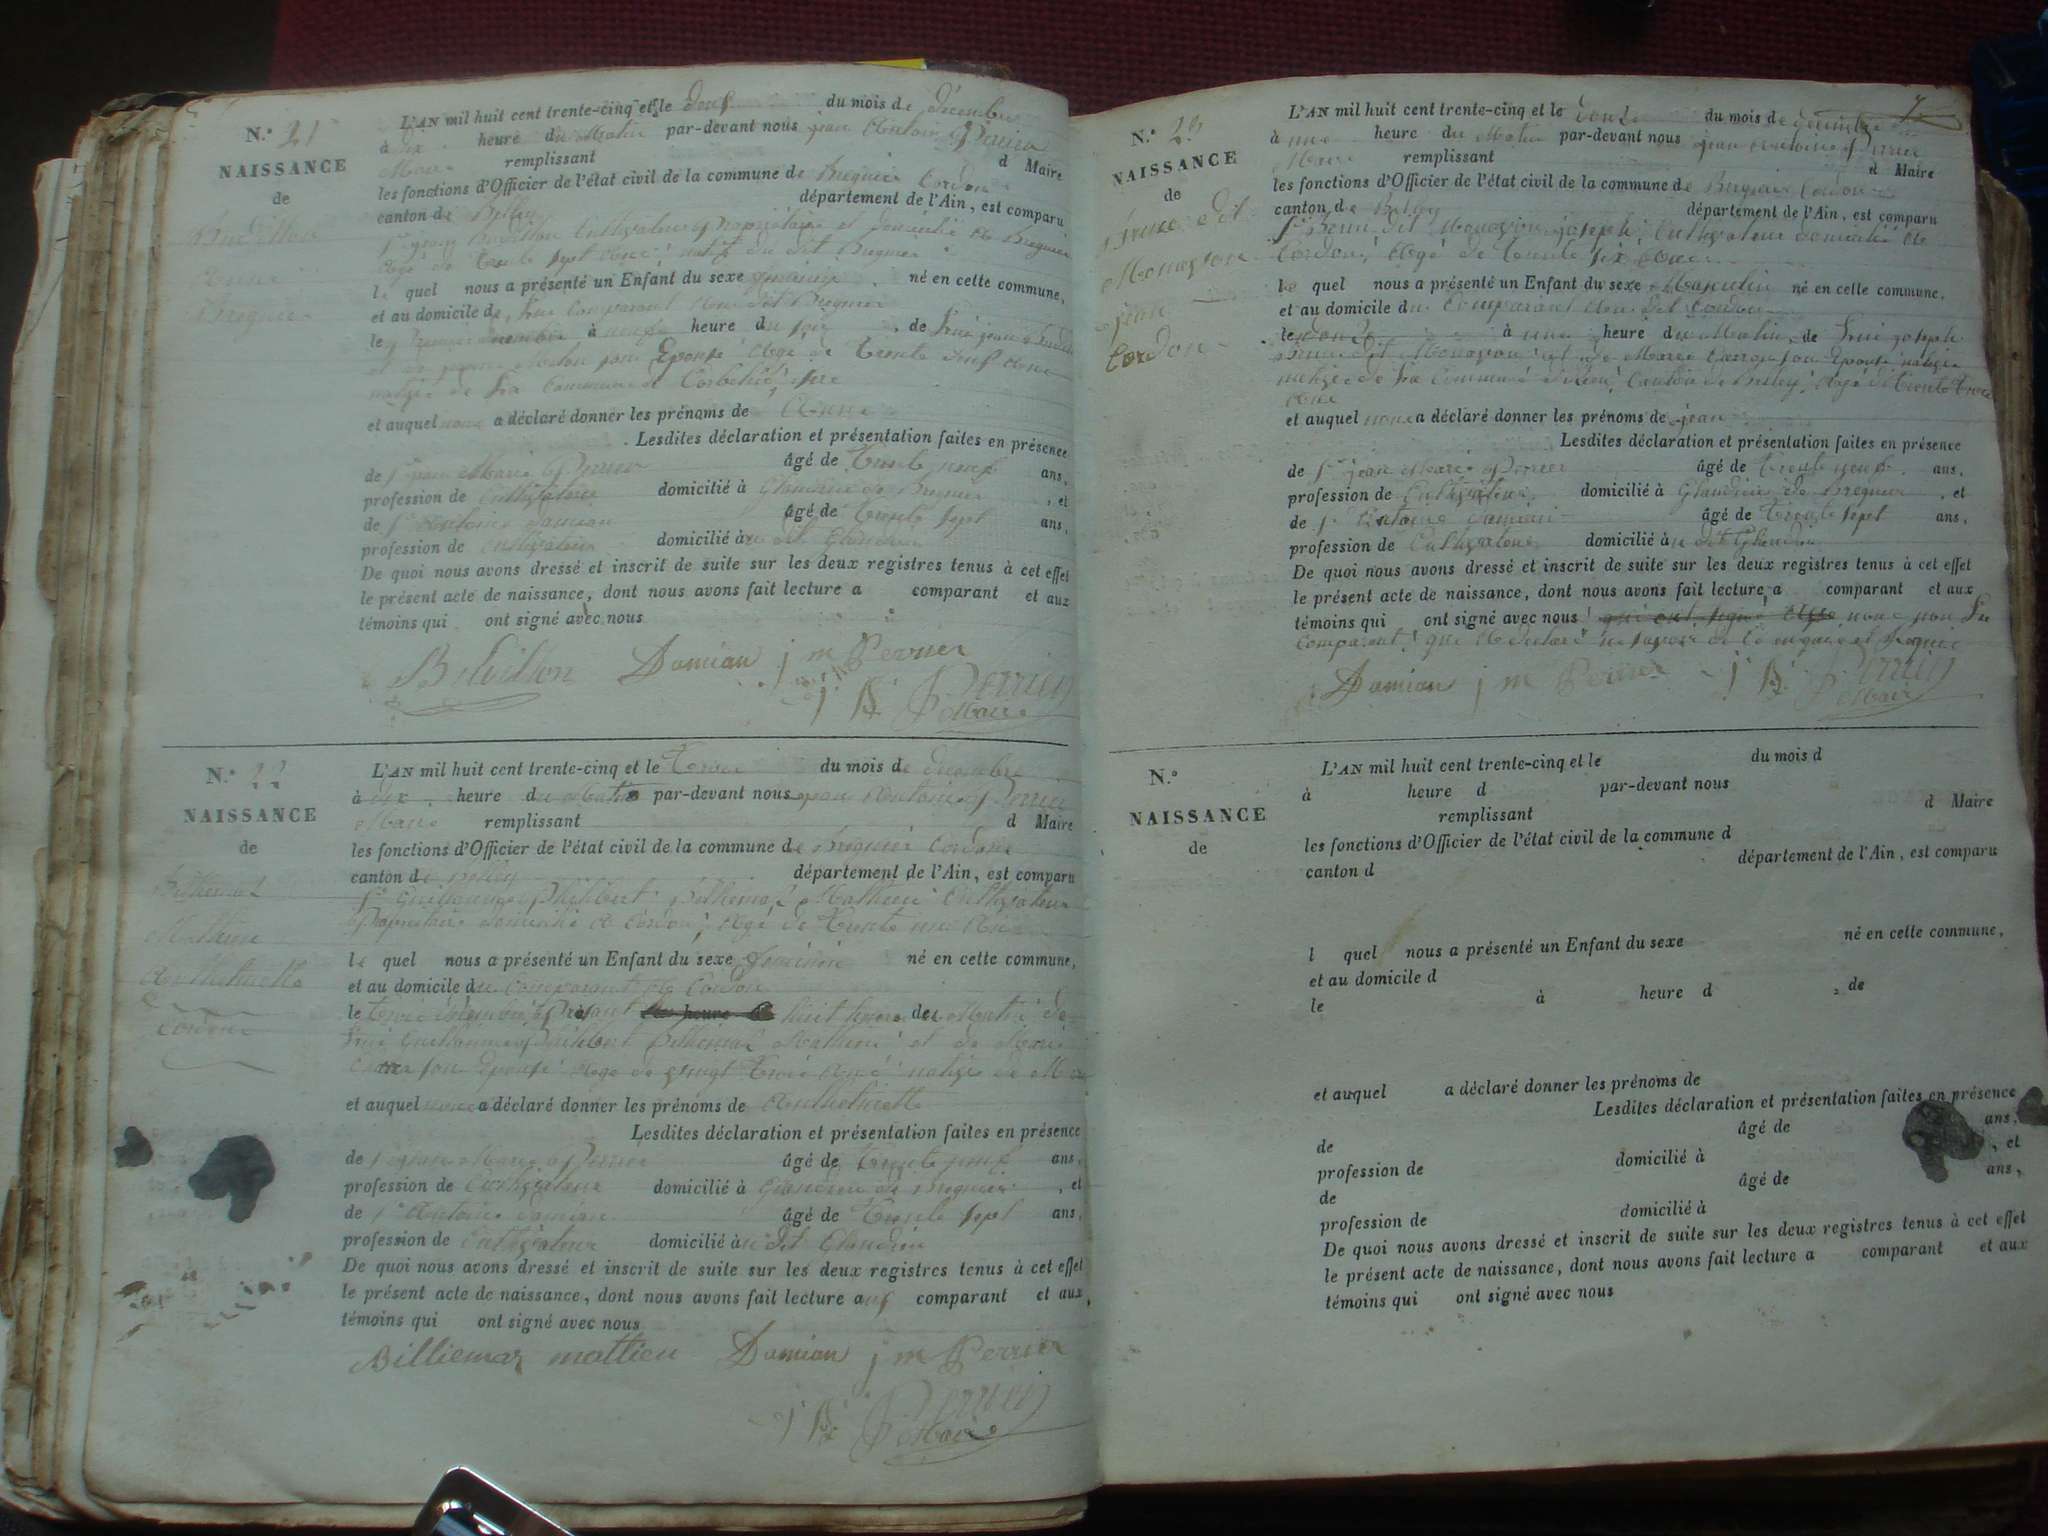 N.° 21
NAISSANCE
de
Budillon
Anne
Bregnier
L'AN mil huit cent trente-cinq et le deux du mois de décembre
à dix heure du Matin par-devant nous jean Antoine Perrier
Maire remplissant d Maire
les fonctions d'Officier de l'état civil de la commune de Bregnier Cordon
canton de Belley département de l'Ain, est comparu
Sr jean Budillon Cultivateur Propriétaire et domicilié à Bregnier
âgé de trente sept ans natif du dit Bregnier
le quel nous a présenté un Enfant du sexe féminin né en cette commune,
et au domicile de comparant au dit Bregnier
le premier décembre à neuf heure du soir, de jean
son Epouse âgé de trente ans
native de la Commune de
et auquel nous a déclaré donner les prénoms de Anne
Lesdites déclaration et présentation faites en présence
de Sr jean Marie Perrier âgé de trente neuf ans,
profession de Cultivateur domicilié à Glandieu de Bregnier, et
de Sr Antoine Damian âgé de trente sept ans,
profession de Cultivateur domicilié au dit Glandieu
De quoi nous avons dressé et inscrit de suite sur les deux registres tenus à cet effet
le présent acte de naissance, dont nous avons fait lecture a comparant et aux
témoins qui ont signé avec nous
Budillon Damian j m Perrier
Perrier
Maire
N.° 22
NAISSANCE
de
Mathieu
Anthelmette
Cordon
L'AN mil huit cent trente-cinq et le trois du mois de décembre
à dix heure du Matin par-devant nous jean Antoine Perrier
Maire remplissant d Maire
les fonctions d'Officier de l'état civil de la commune de Bregnier Cordon
canton de Belley département de l'Ain, est comparu
Sr Guillaume Philibert Mathieu Cultivateur
Propriétaire domicilié à Cordon, âgé de trente un ans
le quel nous a présenté un Enfant du sexe féminin né en cette commune,
et au domicile du comparant à Cordon
le trois décembre huit heure du Matin de
Guillaume Philibert Mathieu et de Marie
son Epouse âgé de vingt trois ans native de
et auquel nous a déclaré donner les prénoms de Anthelmette
Lesdites déclaration et présentation faites en présence
de Sr jean Marie Perrier âgé de trente neuf ans,
profession de Cultivateur domicilié à Glandieu de Bregnier, et
de Sr Antoine Damian âgé de trente sept ans,
profession de Cultivateur domicilié au dit Glandieu
De quoi nous avons dressé et inscrit de suite sur les deux registres tenus à cet effet
le présent acte de naissance, dont nous avons fait lecture au comparant et aux
témoins qui ont signé avec nous
Billiemaz mattieu Damian j m Perrier
Perrier
Maire
N.° 23
NAISSANCE
de
dit
jean
Cordon
L'AN mil huit cent trente-cinq et le douze du mois de décembre
à une heure du Matin par-devant nous jean Antoine Perrier
Maire remplissant d Maire
les fonctions d'Officier de l'état civil de la commune de Bregnier Cordon
canton de Belley département de l'Ain, est comparu
Sr dit joseph Cultivateur domicilié à
Cordon, âgé de trente six ans
le quel nous a présenté un Enfant du sexe Masculin né en cette commune,
et au domicile du comparant au dit Cordon
le douze à une heure du Matin, de joseph
dit et de Marie son Epouse
native de la Commune Canton de Belley, âgé de trente trois
ans
et auquel nous a déclaré donner les prénoms de jean
Lesdites déclaration et présentation faites en présence
de Sr jean Marie Perrier âgé de trente neuf ans,
profession de Cultivateur domicilié à Glandieu de Bregnier, et
de Sr Antoine Damian âgé de trente sept ans,
profession de Cultivateur domicilié au dit Glandieu
De quoi nous avons dressé et inscrit de suite sur les deux registres tenus à cet effet
le présent acte de naissance, dont nous avons fait lecture a comparant et aux
témoins qui ont signé avec nous qui ont signé avec nous non le
comparant qui a déclaré ne savoir de ce enquis et requis
Damian j m Perrier Perrier
Maire
N.°
NAISSANCE
de
L'AN mil huit cent trente-cinq et le du mois d
à heure d par-devant nous
remplissant d Maire
les fonctions d'Officier de l'état civil de la commune d
canton d département de l'Ain, est comparu
l quel nous a présenté un Enfant du sexe né en cette commune,
et au domicile d
le à heure d, de
et auquel a déclaré donner les prénoms de
Lesdites déclaration et présentation faites en présence
de âgé de ans,
profession de domicilié à, et
de âgé de ans,
profession de domicilié à
De quoi nous avons dressé et inscrit de suite sur les deux registres tenus à cet effet
le présent acte de naissance, dont nous avons fait lecture a comparant et aux
témoins qui ont signé avec nous